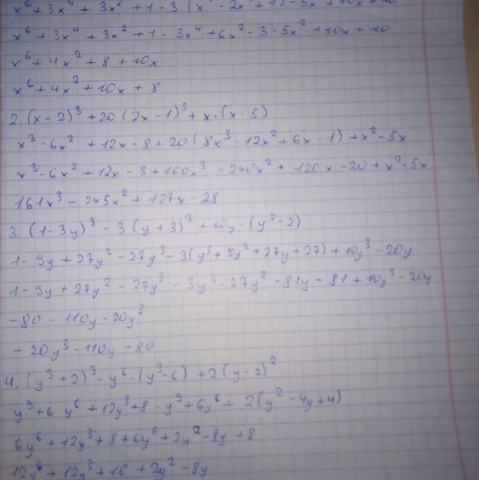 x⁶ + 3x⁴ + 3x² + 1 - 3 (x⁴ - 2x² + 1) - 5x + 10x + 10
x⁶ + 3x⁴ + 3x² + 1 - 3x⁴ + 6x² - 3 - 5x² + 10x + 10
x⁶ + 4x² + 8 + 10x
x⁶ + 4x² + 10x + 8
2. (x - 2)³ + 20 (2x - 1)³ + x · (x - 5)
x³ - 6x² + 12x - 8 + 20 (8x³ - 12x² + 6x - 1) + x² - 5x
x³ - 6x² + 12x - 8 + 160x³ - 240x² + 120x - 20 + x² - 5x
161x³ - 245x² + 127x - 28
3. (1 - 3y)³ - 3 (y + 3)³ + 10y · (y² - 2)
1 - 9y + 27y² - 27y³ - 3 (y³ + 9y² + 27y + 27) + 10y³ - 20y
1 - 9y + 27y² - 27y³ - 3y³ - 27y² - 81y - 81 + 10y³ - 20y
-80 - 110y - 20y³
- 20y³ - 110y - 80
4. (y³ + 2)³ - y⁶ · (y³ - 6) + 2 (y - 2)²
y⁹ + 6y⁶ + 12y³ + 8 - y⁹ + 6y⁶ + 2(y² - 4y + 4)
6y⁶ + 12y³ + 8 + 6y⁶ + 2y² - 8y + 8
12y⁶ + 12y³ + 16 + 2y² - 8y